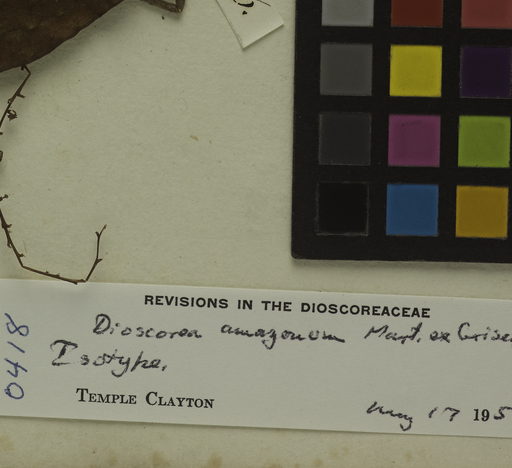 REVISIONS IN THE DIOSCOREACEAE
Dioscorea amazonum Mart. ex Grise
Isotype.
TEMPLE CLAYTON
May 17 195
0418